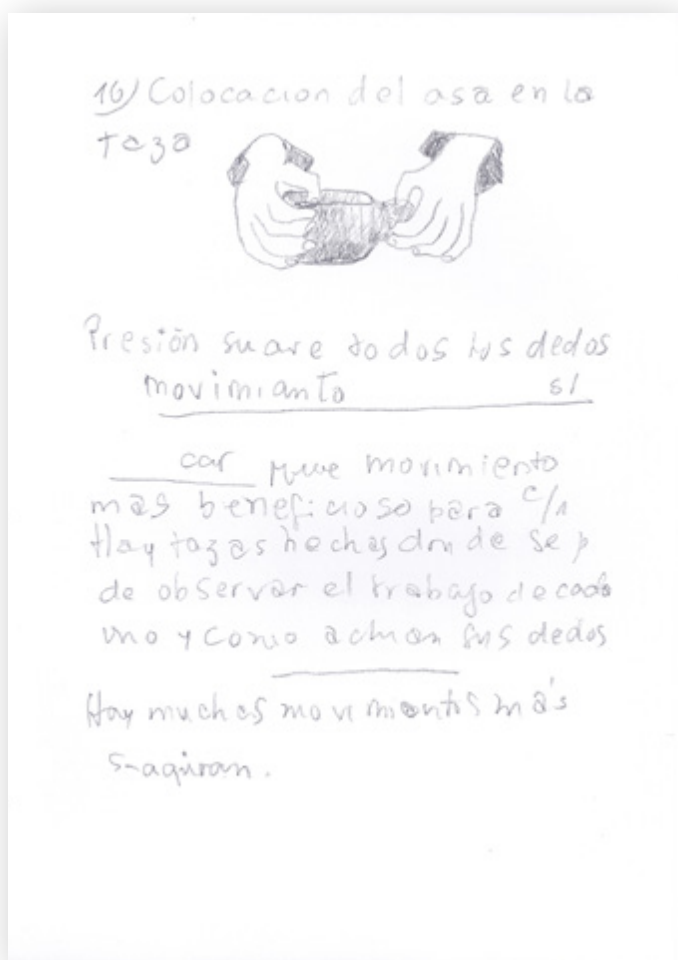 16) Colocacion del asa en la
taza
Presión suave todos los dedos
movimianto sl
car movimiento
mas beneficioso para c/1
Hay tazas hechas donde se p
de observar el trabajo de cada
uno y como actuan sus dedos
Hay muchos movimientos más